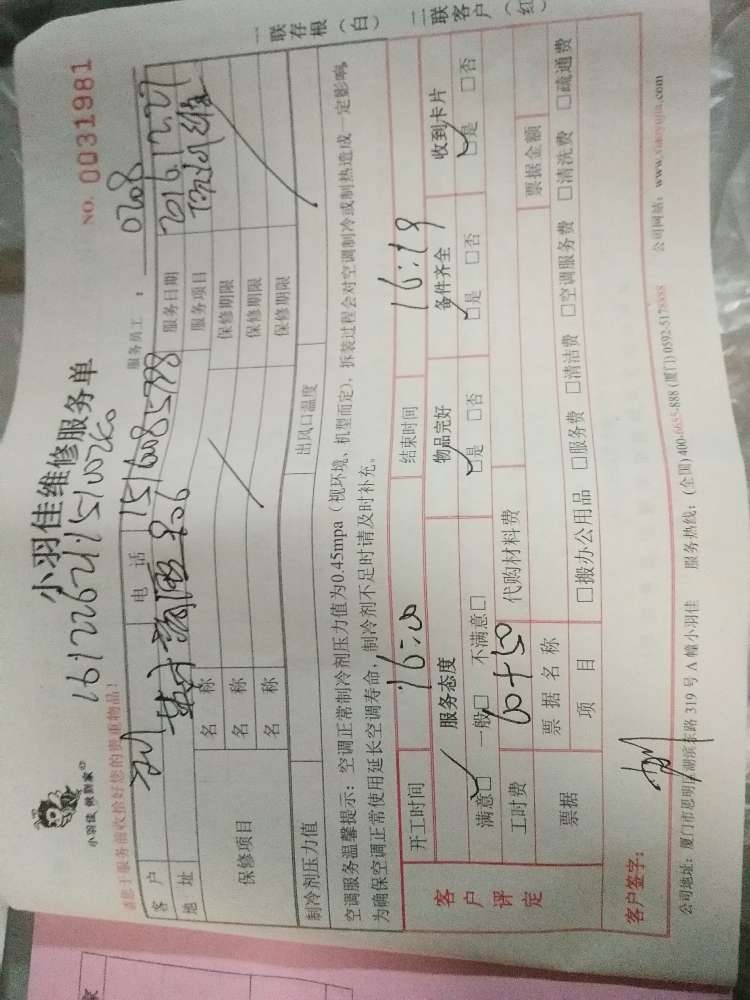 小羽佳 使到家
小羽佳维修服务单
NO. 0031981
请您于服务前收拾好您的贵重物品！
服务员工： 0208
客户 电话 服务日期 2016.12.27
地址 服务项目
保修项目 名称 保修期限
名称 保修期限
名称 保修期限
制冷剂压力值 出风口温度
空调服务温馨提示：空调正常制冷剂压力值为0.45mpa（视环境、机型而定），拆装过程会对空调制冷或制热造成一定影响，
为确保空调正常使用延长空调寿命，制冷剂不足时请及时补充。
一联存根（白）
二联客户（红）
客户评定
开工时间 16:00 结束时间 16:29
服务态度 物品完好 备件齐全 收到卡片
满意□ 一般□ 不满意□ □是 □否 □是 □否 □是 □否
工时费 60+50 代购材料费
票据 票据名称 票据金额
项目 □搬办公用品 □服务费 □清洁费 □空调服务费 □清洗费 □疏通费
客户签字：
公司地址：厦门市思明区湖滨东路 319 号 A 幢小羽佳 服务热线：(全国) 400-6655-888 (厦门) 0592-5178888 公司网站：www.xiaoyujia.com